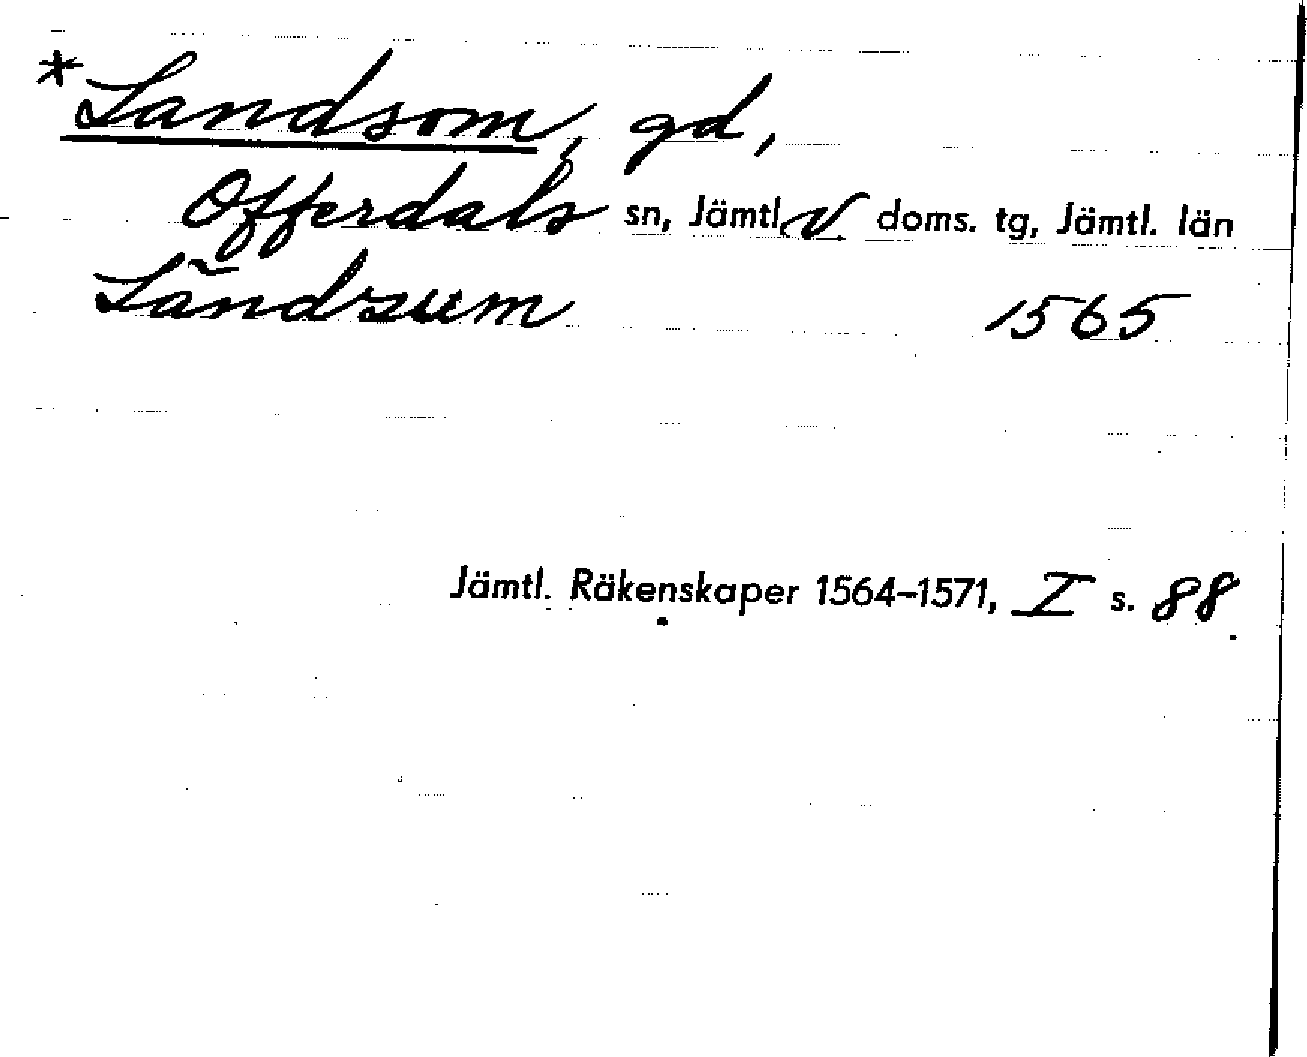 *Landsom, gd,
Offerdals sn, Jämtl. V doms. tg, Jämtl. län
Lãndzum 1565
Jämtl. Räkenskaper 1564–1571, I s. 88.